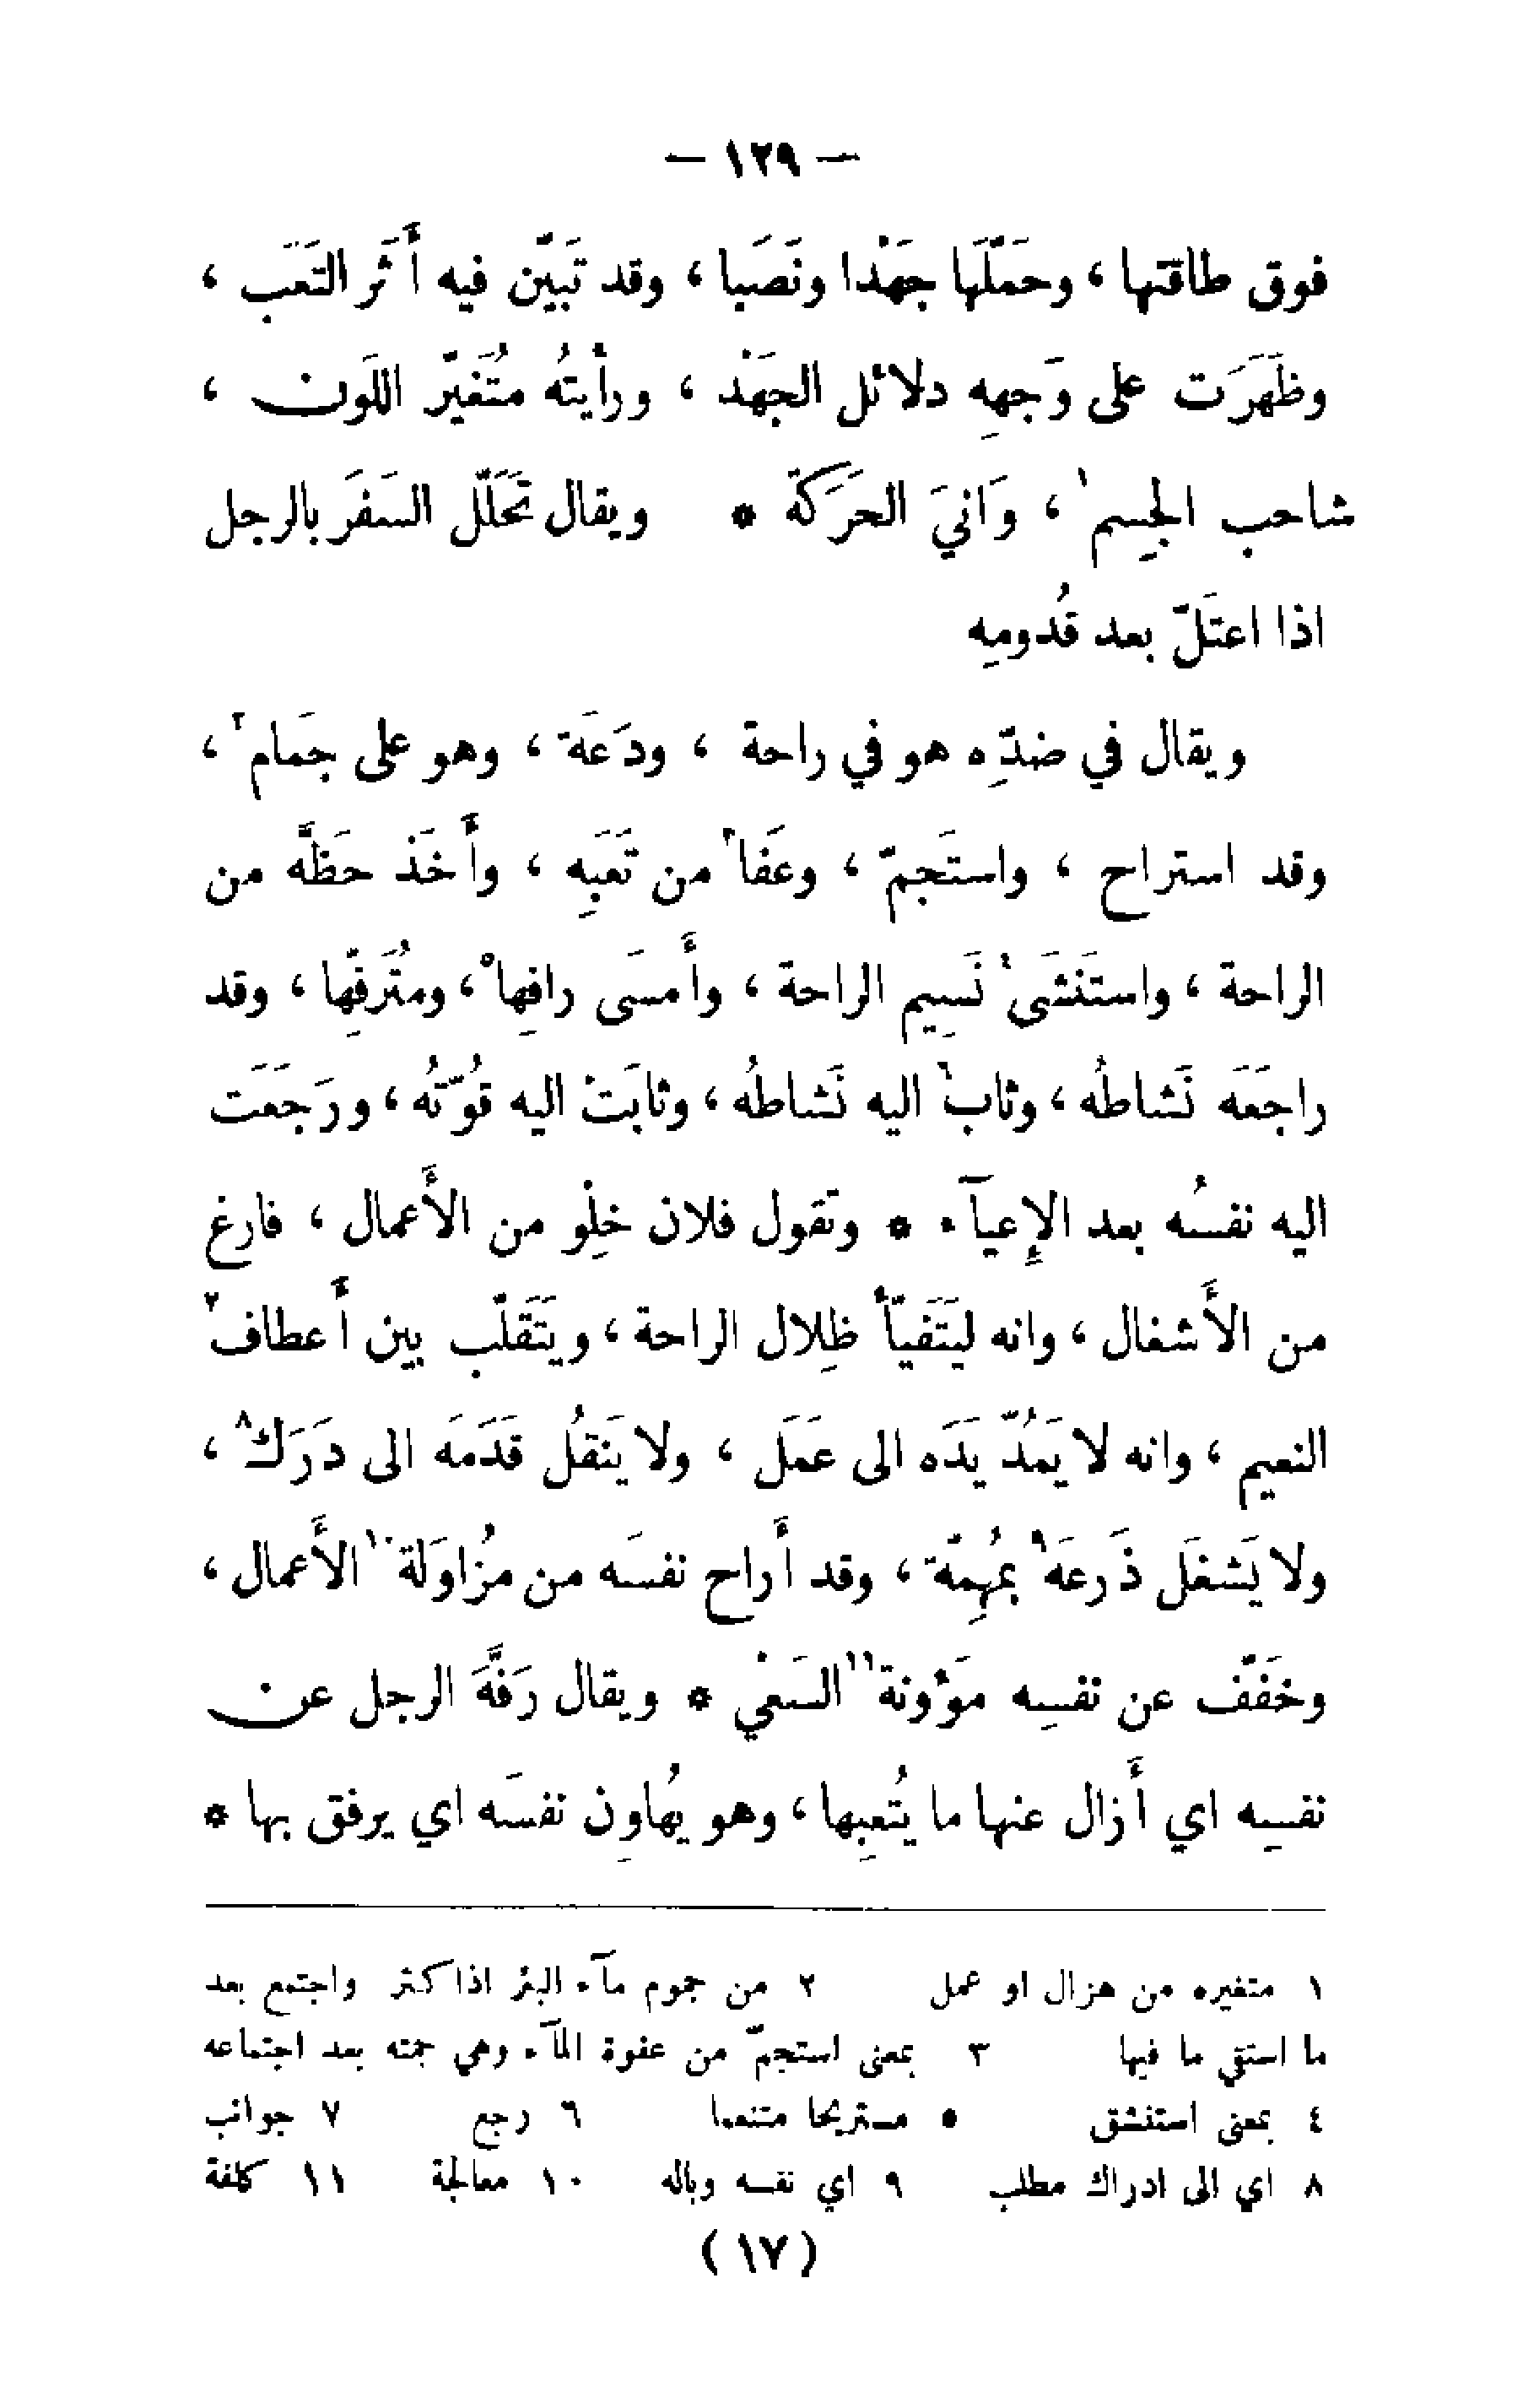 — ١٢٩ —
فوق طاقتها ، وحَمَّلَها جَهْدا ونَصَبا ، وقد تَبَيّن فيه أَثَر التَعَب ،
وظَهَرَت على وَجههِ دلائل الجَهْد ، ورأيتهُ مُتَغيّر اللَون ،
شاحب الجِسم١ ، وَانيَ الحَرَكَة * ويقال تَحَلّل السَفَر بالرجل
اذا اعتَلّ بعد قُدومهِ
ويقال في ضدّهِ هو في راحة ، ودَعَة ، وهو على جَمام٢ ،
وقد استراح ، واستَجمّ ، وعَفا٣ من تَعَبِه ، وأَخَذ حَظَّه من
الراحة ، واستَنشَى٤ نَسِيم الراحة ، وأَمسَى رافِها٥ ، ومُتَرفِّها ، وقد
راجَعَه نَشاطُه ، وثاب٦ اليه نَشاطُه ، وثابَتْ اليه قُوّتُه ، ورَجَعَت
اليه نفسُه بعد الإِعيآء * وتقول فلان خِلْو من الأَعمال ، فارغ
من الأَشغال ، وانه ليَتَفيّأ ظِلال الراحة ، ويَتَقلّب بين أَعطاف٧
النعيم ، وانه لا يَمُدّ يدَه الى عَمَل ، ولا يَنقُل قَدَمَه الى دَرَك٨ ،
ولا يَشغَل ذَرعَه٩ بمُهِمّة ، وقد أَراح نفسَه من مُزاوَلة١٠ الأَعمال ،
وخَفّف عن نفسِه مَؤونة١١ السَعْي * ويقال رَفَّهَ الرجل عن
نفسِه اي أَزال عنها ما يُتعِبها ، وهو يُهاوِن نفسَه اي يرفق بها *
١ متغيره من هزال او عمل ٢ من جموم مآء البئر اذا كثر واجتمع بعد
ما استقي ما فيها ٣ بمعنى استجمّ من عفوة المآء وهي جمته بعد اجتماعه
٤ بمعنى استنشق ٥ مستريحا متنعما ٦ رجع ٧ جوانب
٨ اي الى ادراك مطلب ٩ اي نفسه وباله ١٠ معالجة ١١ كلفة
(١٧)